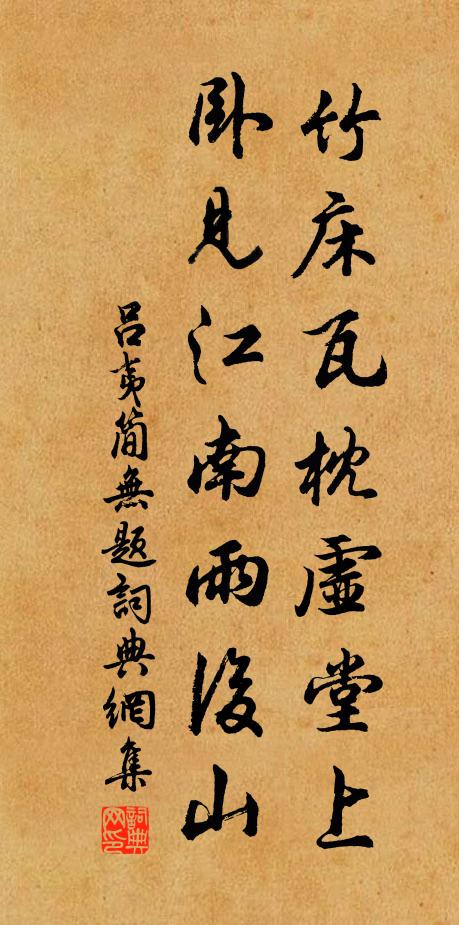 竹床瓦枕虛堂上
臥見江南雨後山
吕夷简無題詞典網集
詞典
网印